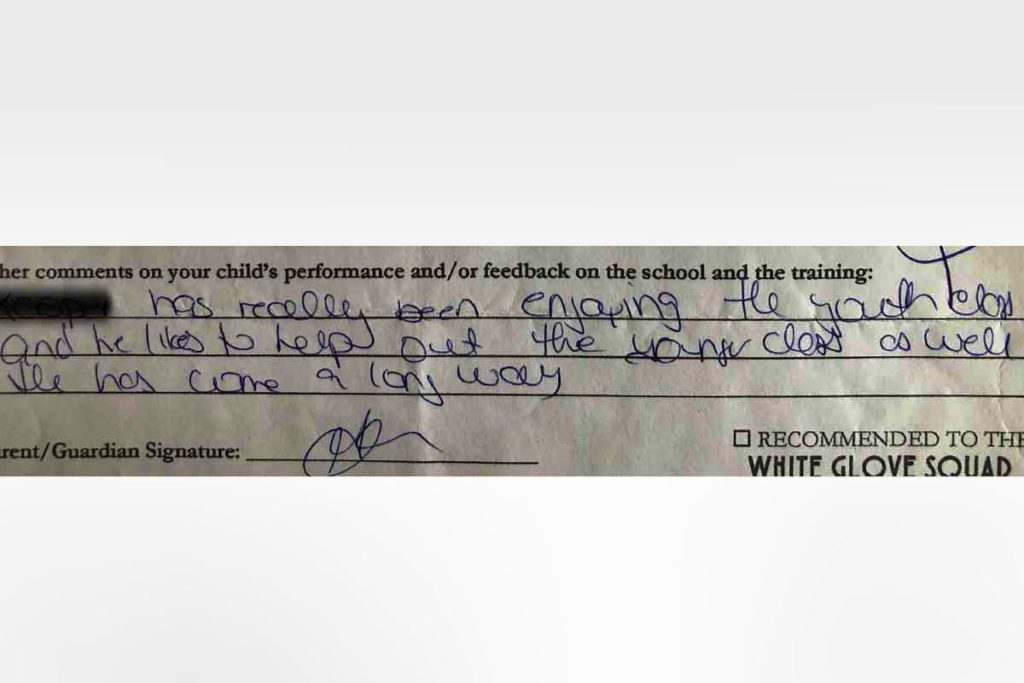 her comments on your child's performance and/or feedback on the school and the training:
has recelly been enjoying the youth class
and he likes to help out the younger class as well
He has come a long way
rent/Guardian Signature:
☐ RECOMMENDED TO THE
WHITE GLOVE SQUAD